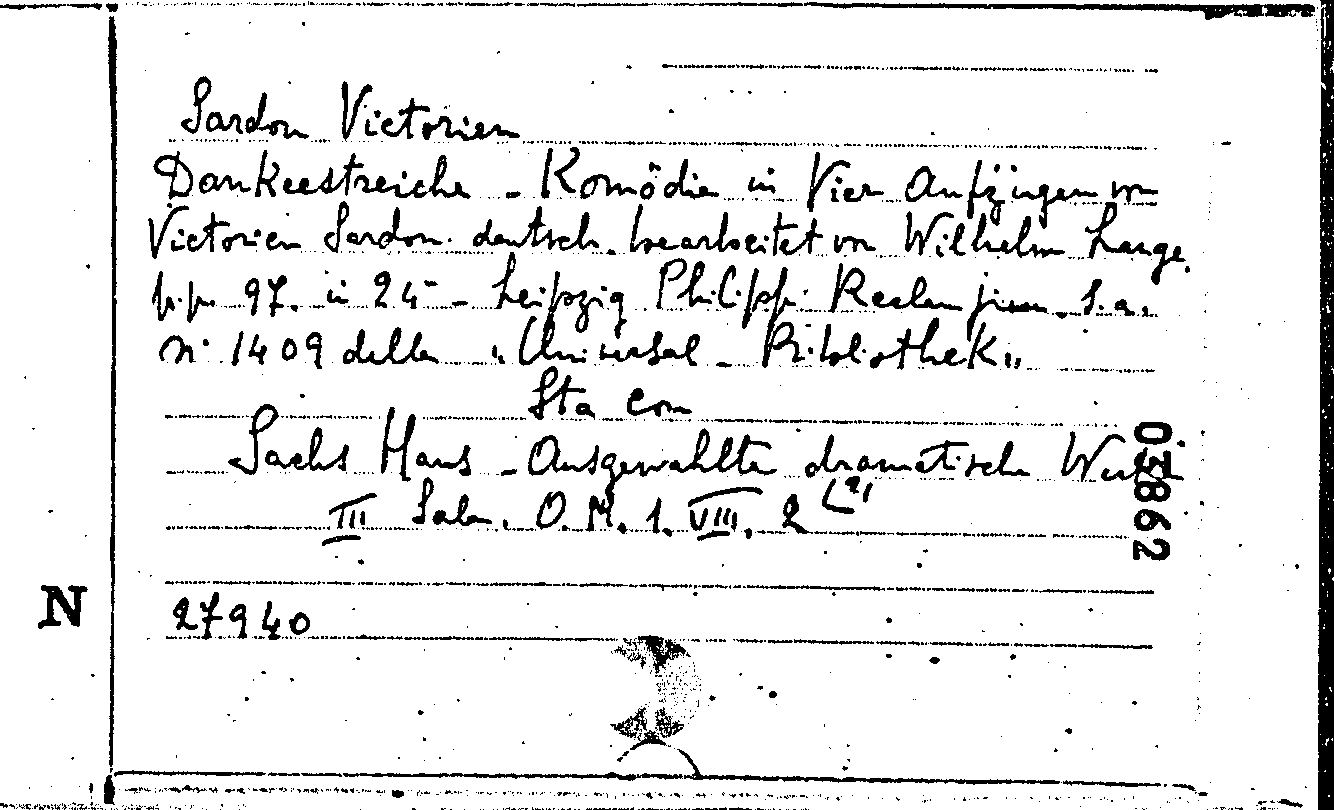 Sardou Victorien
Dankeestreiche - Komödie in Vier Aufzügen von
Victorien Sardou. deutsch. bearbeitet von Wilhelm Lange.
p.p. 97. in 24° - Leipzig Philipp Reclam jiun. s.a.
n° 1409 della "Universal - Bibliothek"
Sta con
Sachs Hans - Ausgewahlte dramatische Werke
III Sala. O. M. 1. VIII. 2 (2)
03862
N
27940